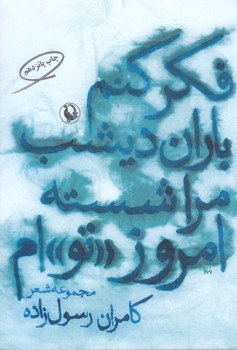 چاپ پانزدهم
فکر کنم
باران دیشب
مرا شسته
امروز «تو»ام
مجموعه شعر
کامران رسول‌زاده